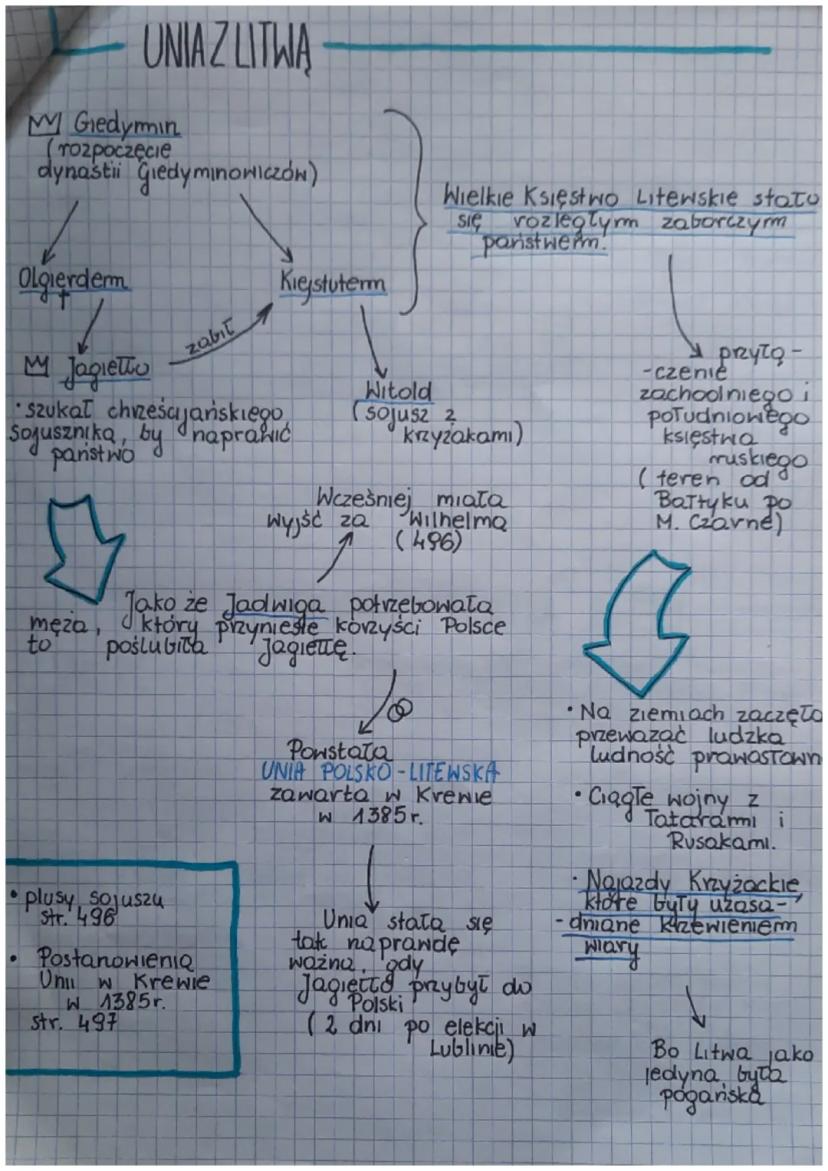 UNIA Z LITWĄ
Giedymin
(rozpoczęcie
dynastii Giedyminowiczów)
Wielkie Księstwo Litewskie stało
się rozległym zaborczym
państwem.
Olgierdem
Kiejstutem
zabił
Jagiełło
• szukał chrześcijańskiego
sojusznika, by naprawić
państwo
Witold
(sojusz z
krzyżakami)
przyłą-
-czenie
zachodniego i
południowego
księstwa
ruskiego
(teren od
Bałtyku po
M. Czarne)
Wcześniej miała
wyjść za Wilhelma
(496)
Jako że Jadwiga potrzebowała
męża, który przyniesie korzyści Polsce
to poślubiła Jagiełłę.
Powstała
UNIA POLSKO-LITEWSKA
zawarta w Krewie
w 1385r.
• Na ziemiach zaczęła
przeważać ludzka
ludność prawosławn
• Ciągłe wojny z
Tatarami i
Rusakami.
• Najazdy Krzyżackie
które były uzasa-
-dniane krzewieniem
wiary
Bo Litwa jako
jedyna była
pogańska
Unia stała się
tak naprawdę
ważna, gdy
Jagiełło przybył do
Polski
(2 dni po elekcji w
Lublinie)
• plusy sojuszu
str. 496
• Postanowienia
Unii w Krewie
w 1385r.
str. 497